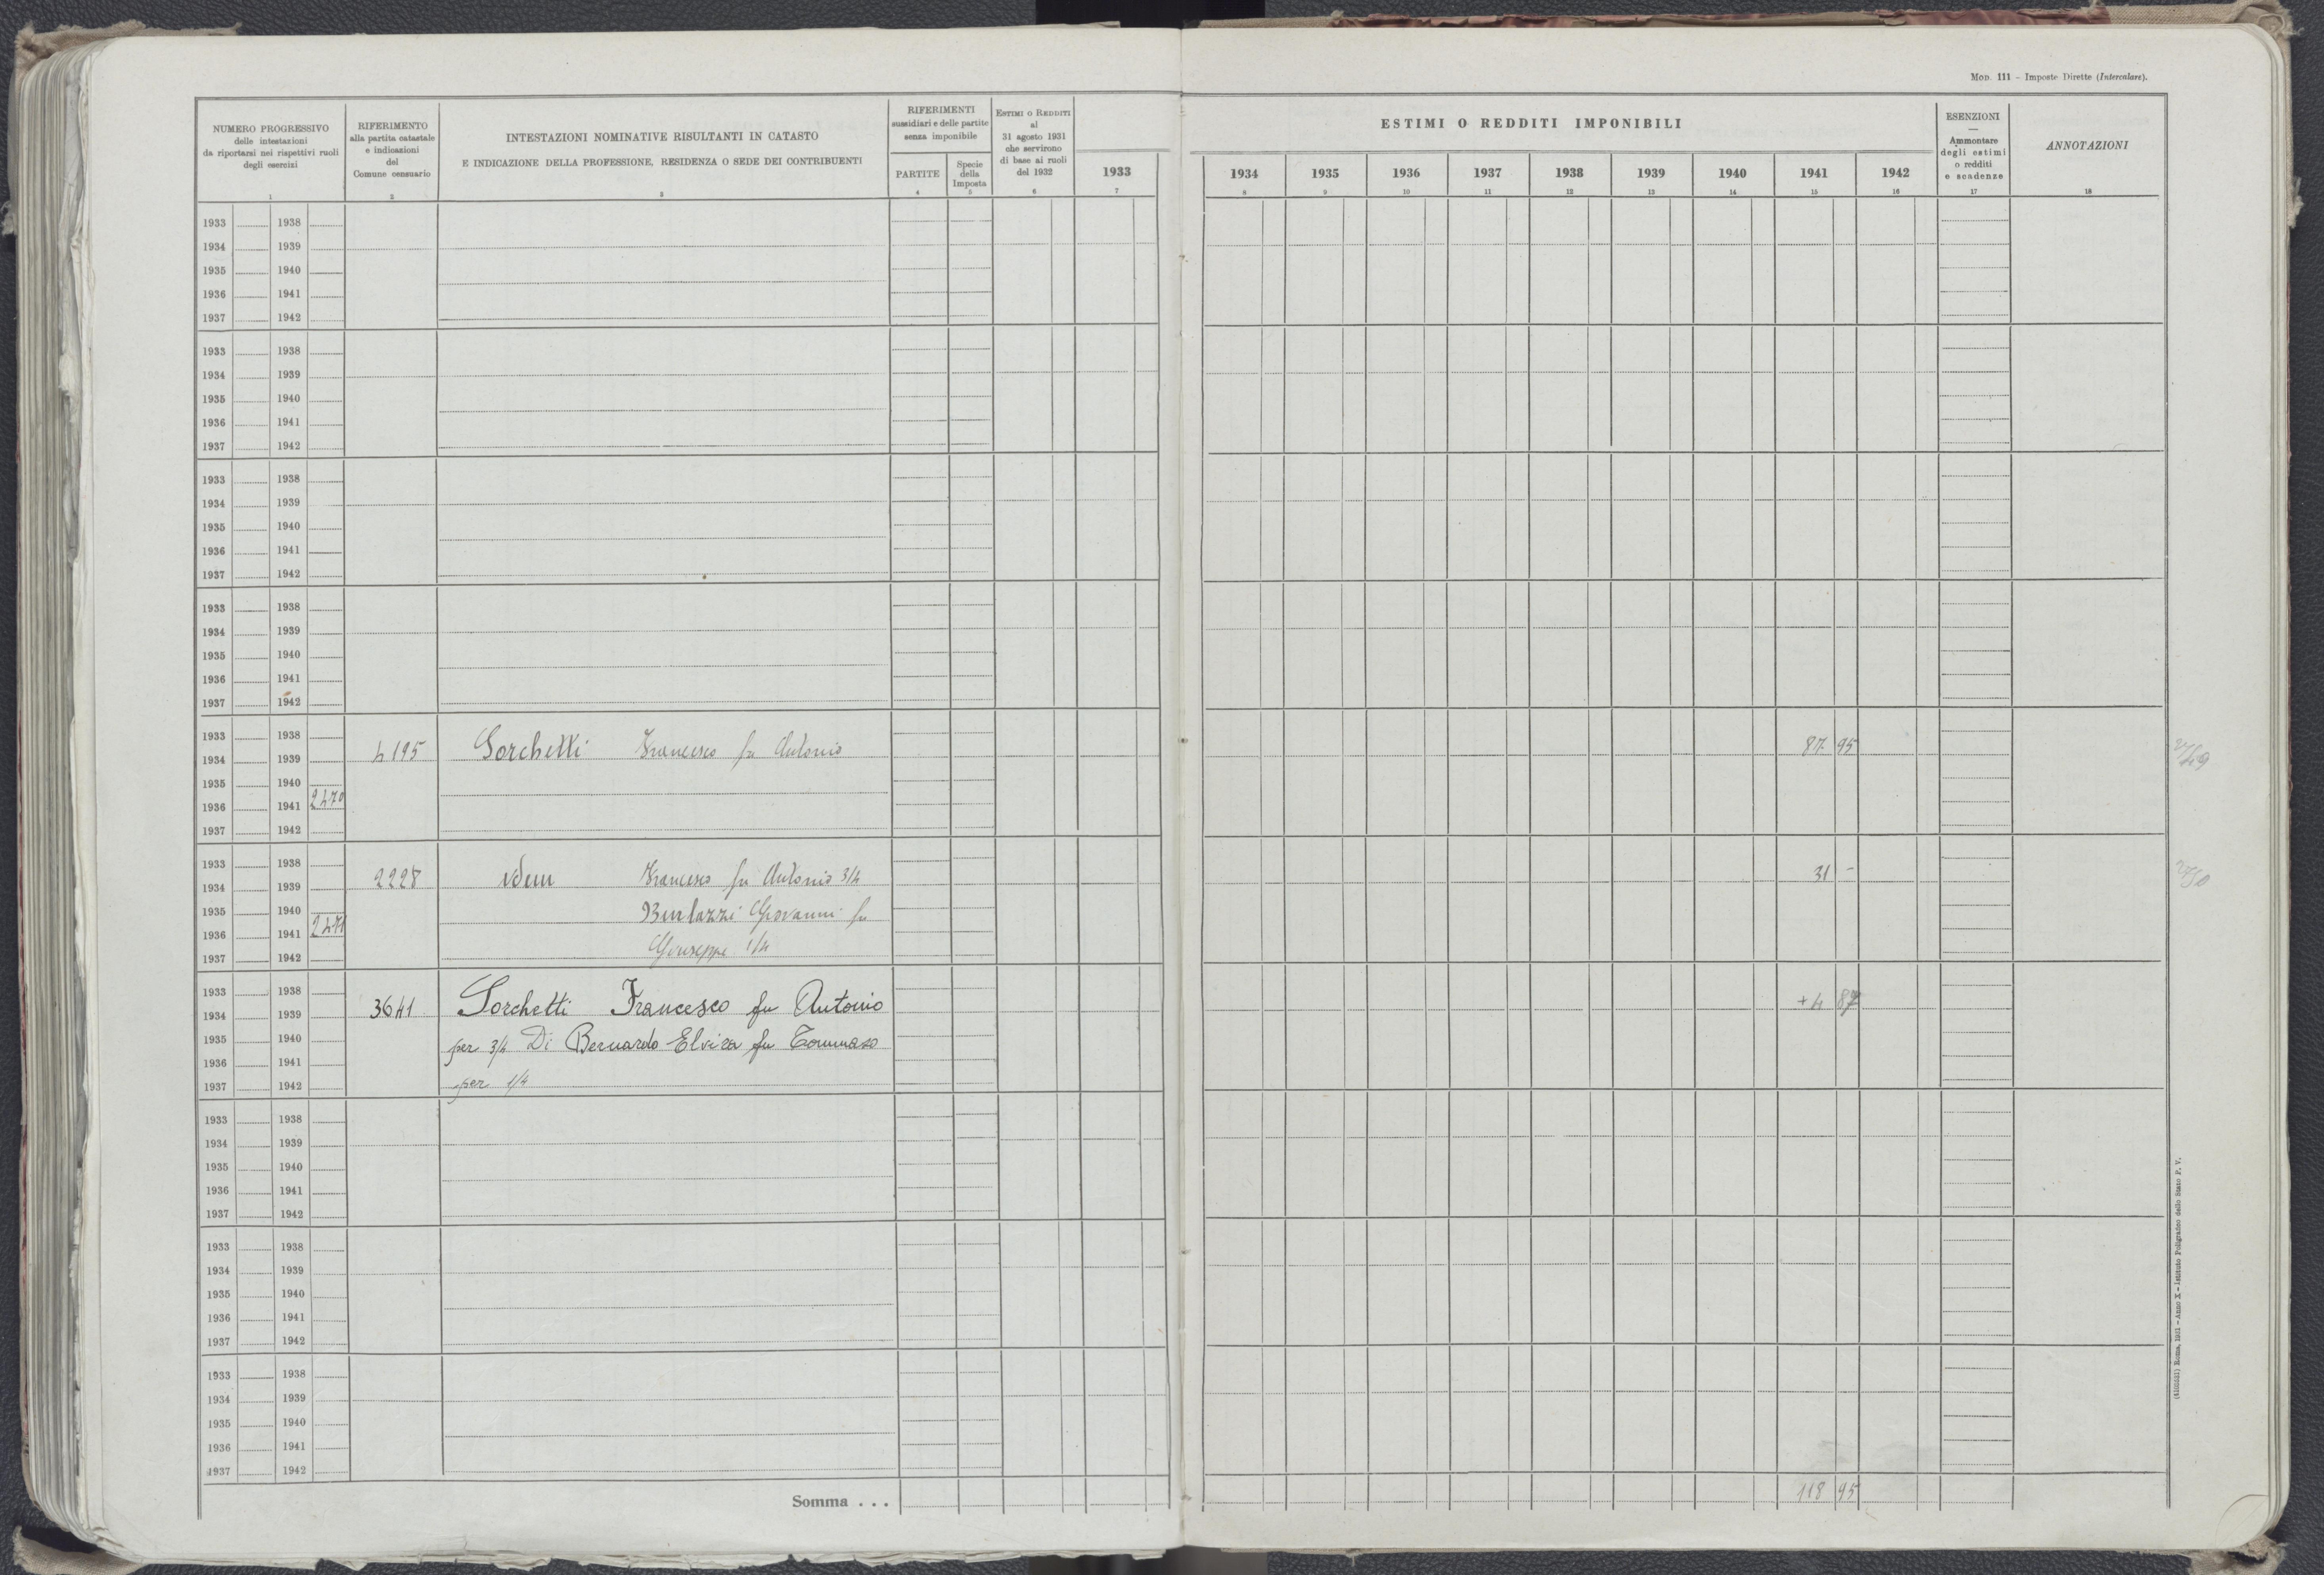 Mod. 111 - Imposte Dirette (Intercalare).
NUMERO PROGRESSIVO
delle intestazioni
da riportarsi nei rispettivi ruoli
degli esercizi
1
RIFERIMENTO
alla partita catastale
e indicazioni
del
Comune censuario
2
INTESTAZIONI NOMINATIVE RISULTANTI IN CATASTO
E INDICAZIONE DELLA PROFESSIONE, RESIDENZA O SEDE DEI CONTRIBUENTI
3
RIFERIMENTI
sussidiari e delle partite
senza imponibile
PARTITE
4
Specie
della
Imposta
5
ESTIMI O REDDITI
al
31 agosto 1931
che servirono
di base ai ruoli
del 1932
6
ESTIMI O REDDITI IMPONIBILI
1933 1934 1935 1936 1937 1938 1939 1940 1941 1942
7 8 9 10 11 12 13 14 15 16
ESENZIONI
—
Ammontare
degli estimi
o redditi
e scadenze
17
ANNOTAZIONI
18
1933 1938
1934 1939
1935 1940
1936 1941
1937 1942
1933 1938
1934 1939
1935 1940
1936 1941
1937 1942
1933 1938
1934 1939
1935 1940
1936 1941
1937 1942
1933 1938
1934 1939
1935 1940
1936 1941
1937 1942
1933 1938
1934 1939 4195 Sorchetti Francesco fu Antonio 87 95
1935 1940
1936 1941 2470
1937 1942
1933 1938
1934 1939 2228 Idem Francesco fu Antonio 3/4 31 -
1935 1940 Giovanni fu
1936 1941 2471
1937 1942 Giuseppe 1/4
1933 1938
1934 1939 3641 Sorchetti Francesco fu Antonio + 4 87
1935 1940 per 3/4 Di Bernardo Elvira fu Tommaso
1936 1941
1937 1942 per 1/4
1933 1938
1934 1939
1935 1940
1936 1941
1937 1942
1933 1938
1934 1939
1935 1940
1936 1941
1937 1942
1933 1938
1934 1939
1935 1940
1936 1941
1937 1942
Somma . . . 118 95
(4100551) Roma, 1931 - Anno X - Istituto Poligrafico dello Stato P. V.